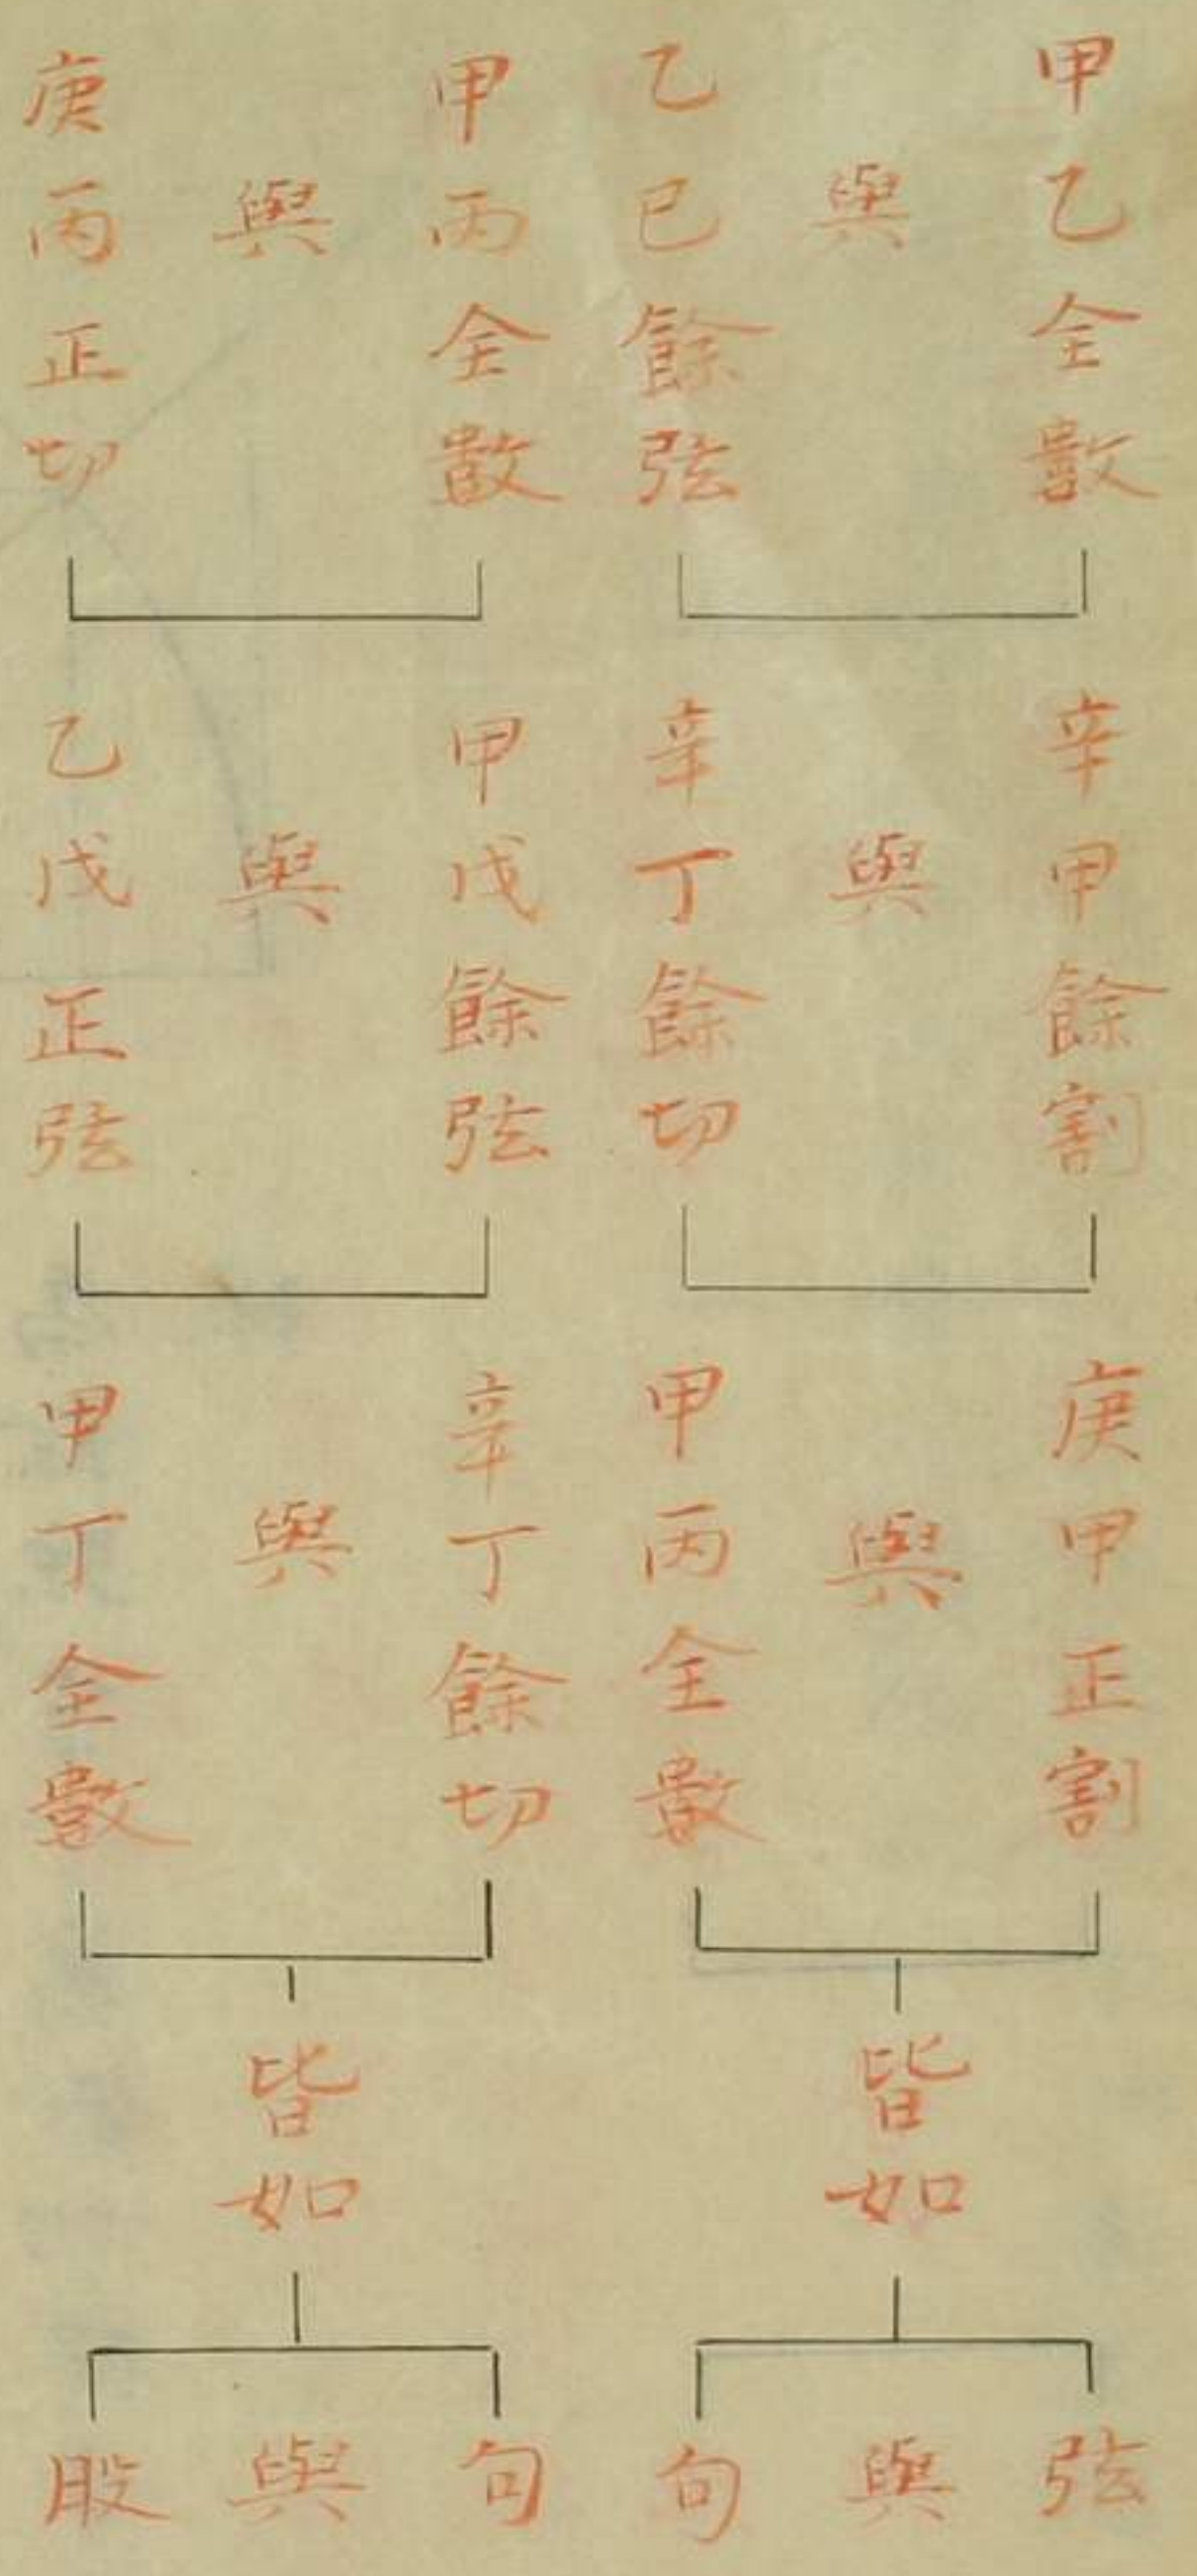 甲乙全數
與
乙已餘弦
辛甲餘割
與
辛丁餘切
庚甲正割
與
甲丙全數
皆如
弦
與
句
甲丙全數
與
庚丙正切
甲戊餘弦
與
乙戊正弦
辛丁餘切
與
甲丁全數
皆如
句
與
股